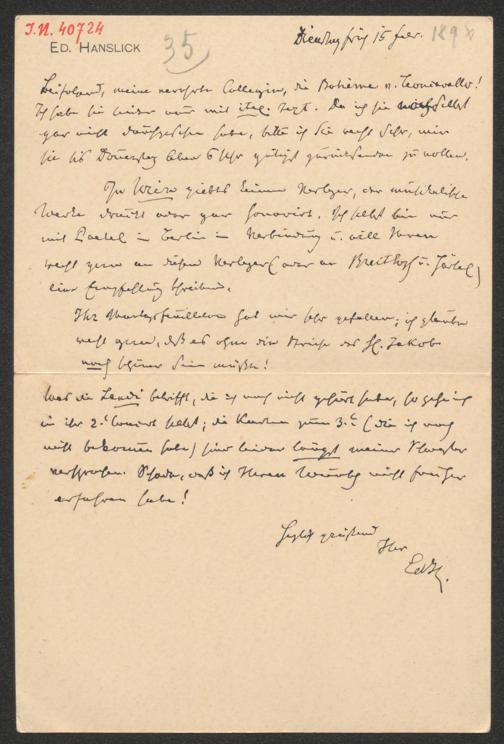 I.N. 40724
ED. HANSLICK
35
Dienstag früh 15 Febr. 189
Beifolgend, meine verehrte Collegin, die Bohême v. Leoncavallo!
Ich habe sie leider nur mit ital. Text. Da ich sie selbst
gar nicht durchgesehen habe, bitte ich Sie recht sehr, mir
sie bis Donnerstag Abend 6 Uhr gütigst zurücksenden zu wollen.
In Wien giebt's keinen Verleger, der musikalische
Werke druckt oder gar honorirt. Ich selbst bin nur
mit Paetel in Berlin in Verbindung u. will Ihnen
recht gern an diesen Verleger (oder an Breitkopf u. Härtel)
eine Empfehlung schreiben.
Ihr feuilleton hat mir sehr gefallen; ich glaube
recht gern, daß es ohne die Striche des H. Jakob
noch schöner sein müßte!
Was die Landi betrifft, die ich noch nicht gehört habe, so gehe ich
in ihr 2. Concert selbst; die Karten zum 3. (die ich noch
nicht bekommen habe) sind leider längst meiner Schwester
versprochen. Schade, daß ich Ihren Wunsch nicht früher
erfahren habe!
Herzlich grüßend
Ihr
EdH.